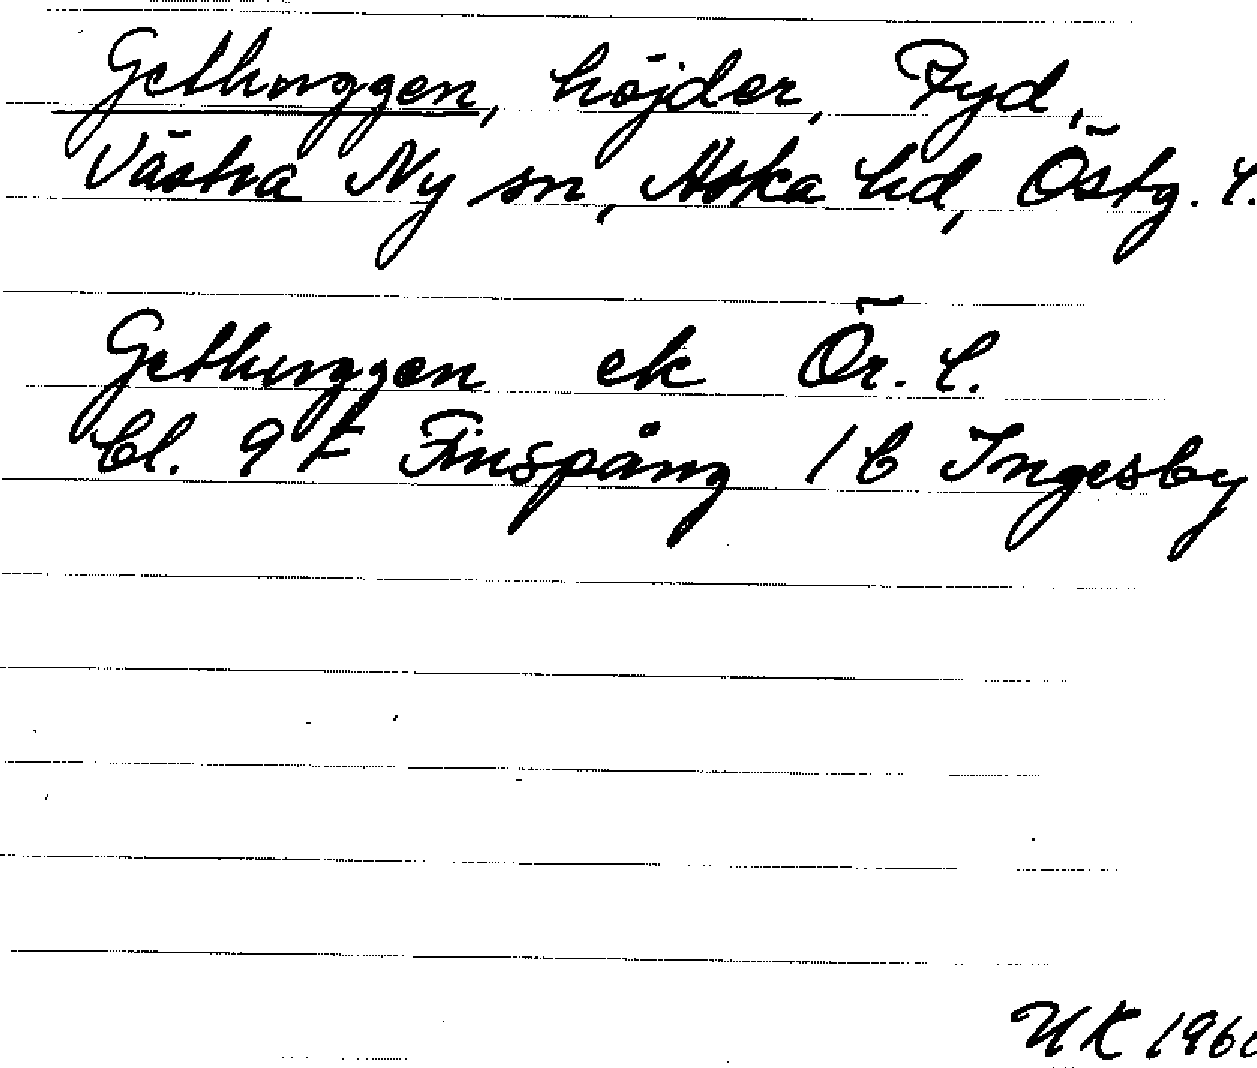 Getkuggen, höjder, Ryd,
Västra Ny sn, Aska hd, Östg. l.
Getkuggen ek Ör. l.
bl. 9 F Finspång 1 b Ingesby
UK 1960